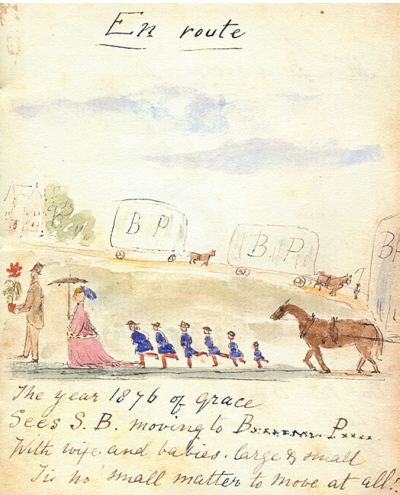 En route
B P
B.P.
B P
The year 1876 of grace
Sees S. B. moving to B........ P....
With wife and babies. large & small
Tis no small matter to move at all!